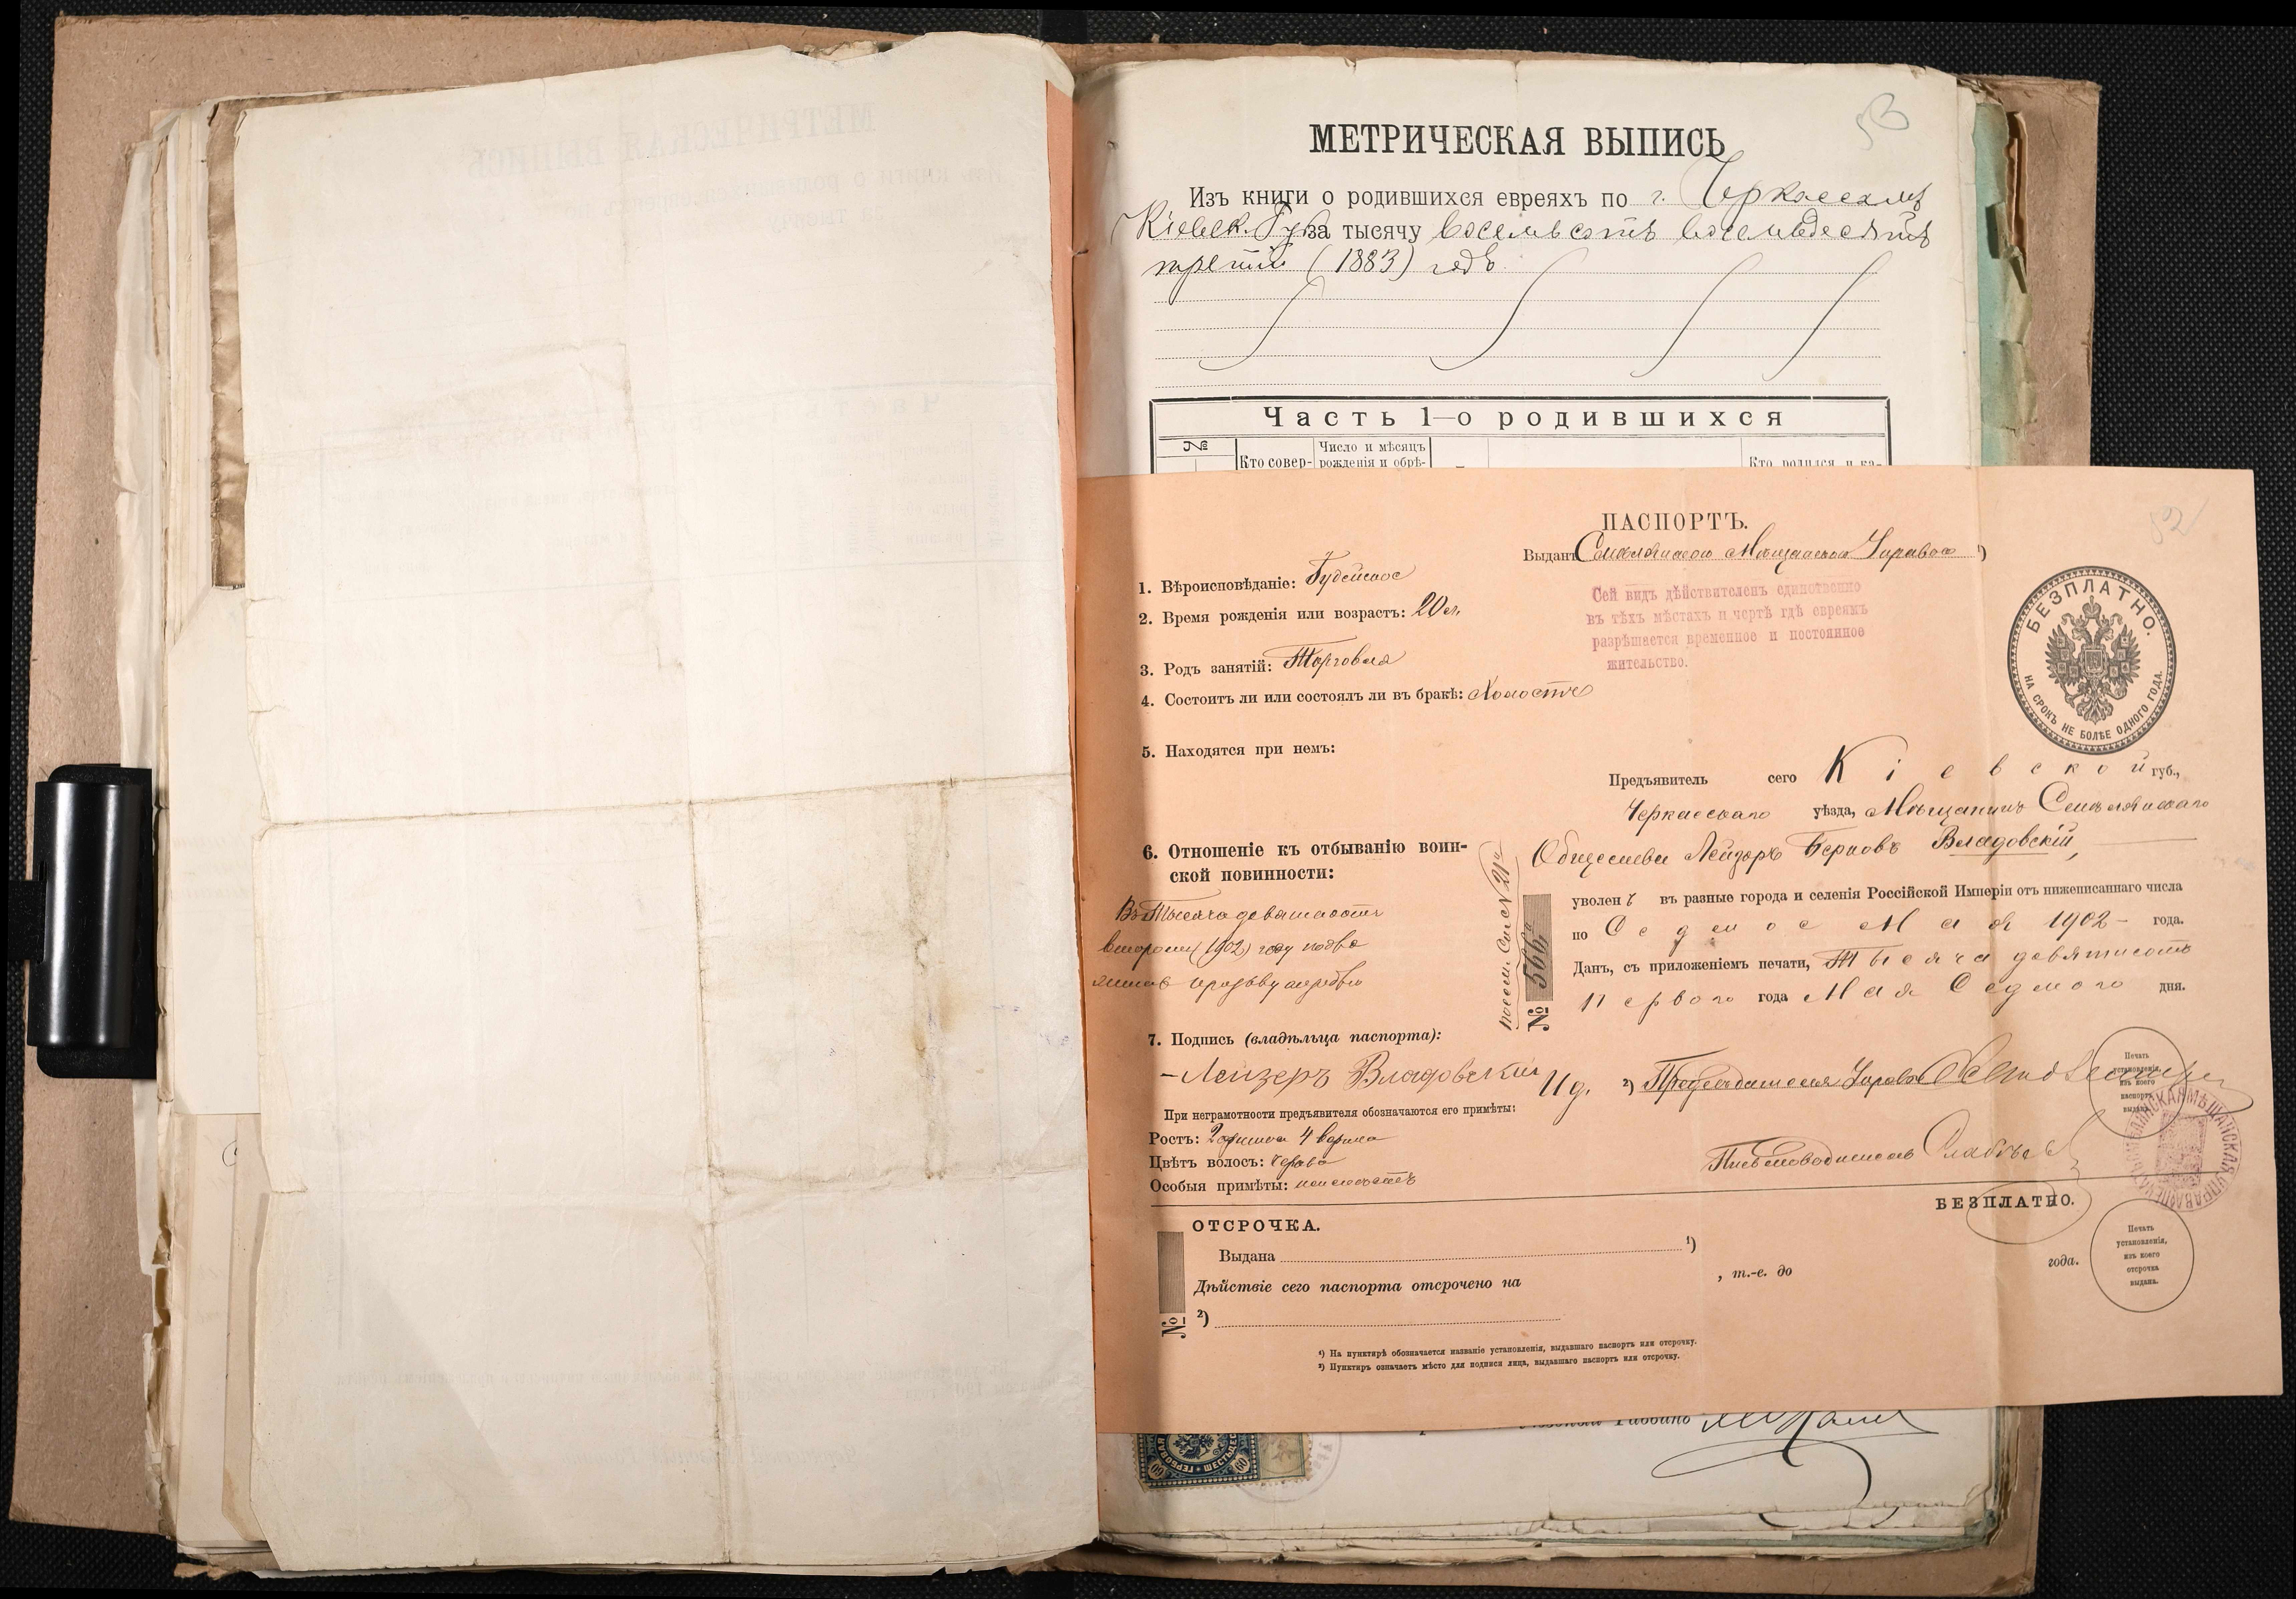 53
МЕТРИЧЕСКАЯ ВЫПИСЬ
Изъ книги о родившихся евреяхъ по г. Черкассамъ
Кіевск. Губ. за тысячу восемьсотъ восемьдесятъ
третій (1883) годъ
Часть 1—о родившихся
№
Кто совер-
Число и мѣсяцъ
рожденія и обрѣ-
Кто родился и ка-
52
ПАСПОРТЪ.
Выданъ Смѣлянскою Мѣщанскою Управою ¹)
Сей видъ дѣйствителенъ единственно
въ тѣхъ мѣстахъ и чертѣ гдѣ евреямъ
разрѣшается временное и постоянное
жительство.
БЕЗПЛАТНО.
НА СРОКЪ НЕ БОЛѢЕ ОДНОГО ГОДА.
1. Вѣроисповѣданіе: Іудейское
2. Время рожденія или возрастъ: 20 л.
3. Родъ занятій: Торговля
4. Состоитъ ли или состоялъ ли въ бракѣ: Холостъ
5. Находятся при немъ:
6. Отношеніе къ отбыванію воин-
ской повинности:
Въ Тысяча девятьсотъ
второмъ (1902) году подле
житъ призыву
7. Подпись (владѣльца паспорта):
Лейзеръ Владовскій
При неграмотности предъявителя обозначаются его примѣты:
Ростъ: 2 аршина 4 вершка
Цвѣтъ волосъ:
Особыя примѣты:
№ 566
Предъявитель сего Кіевской губ.,
Черкасскаго уѣзда, Мѣщанинъ Смѣлянскаго
Общества Лейзеръ Берковъ Владовскій,
уволенъ въ разные города и селенія Россійской Имперіи отъ нижеписаннаго числа
по Седмое Мая 1902 года.
Данъ, съ приложеніемъ печати, Тысяча девятисотъ
Перваго года Мая Седмого дня.
И д. ²) Предсѣдателя Управы
Печать
установленія,
изъ коего
паспортъ
выданъ.
Письмоводитель
БЕЗПЛАТНО.
ОТСРОЧКА.
Выдана ¹)
Дѣйствіе сего паспорта отсрочено на , т.-е. до года.
№
²)
Печать
установленія,
изъ коего
отсрочка
выдана.
¹) На пунктирѣ обозначается названіе установленія, выдавшаго паспортъ или отсрочку.
²) Пунктиръ означаетъ мѣсто для подписи лица, выдавшаго паспортъ или отсрочку.
Раввинъ
60
60